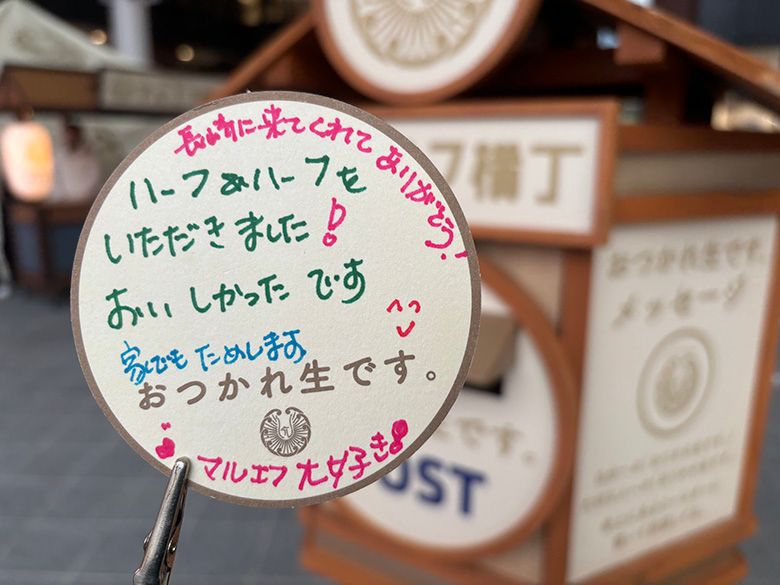 長崎に来てくれて ありがとう!
ハーフ&ハーフを
いただきました!
おいしかったです
家でもためします
おつかれ生です。
マルエフ大好き
フ横丁
おつかれ生です。
メッセージ
です。
OST